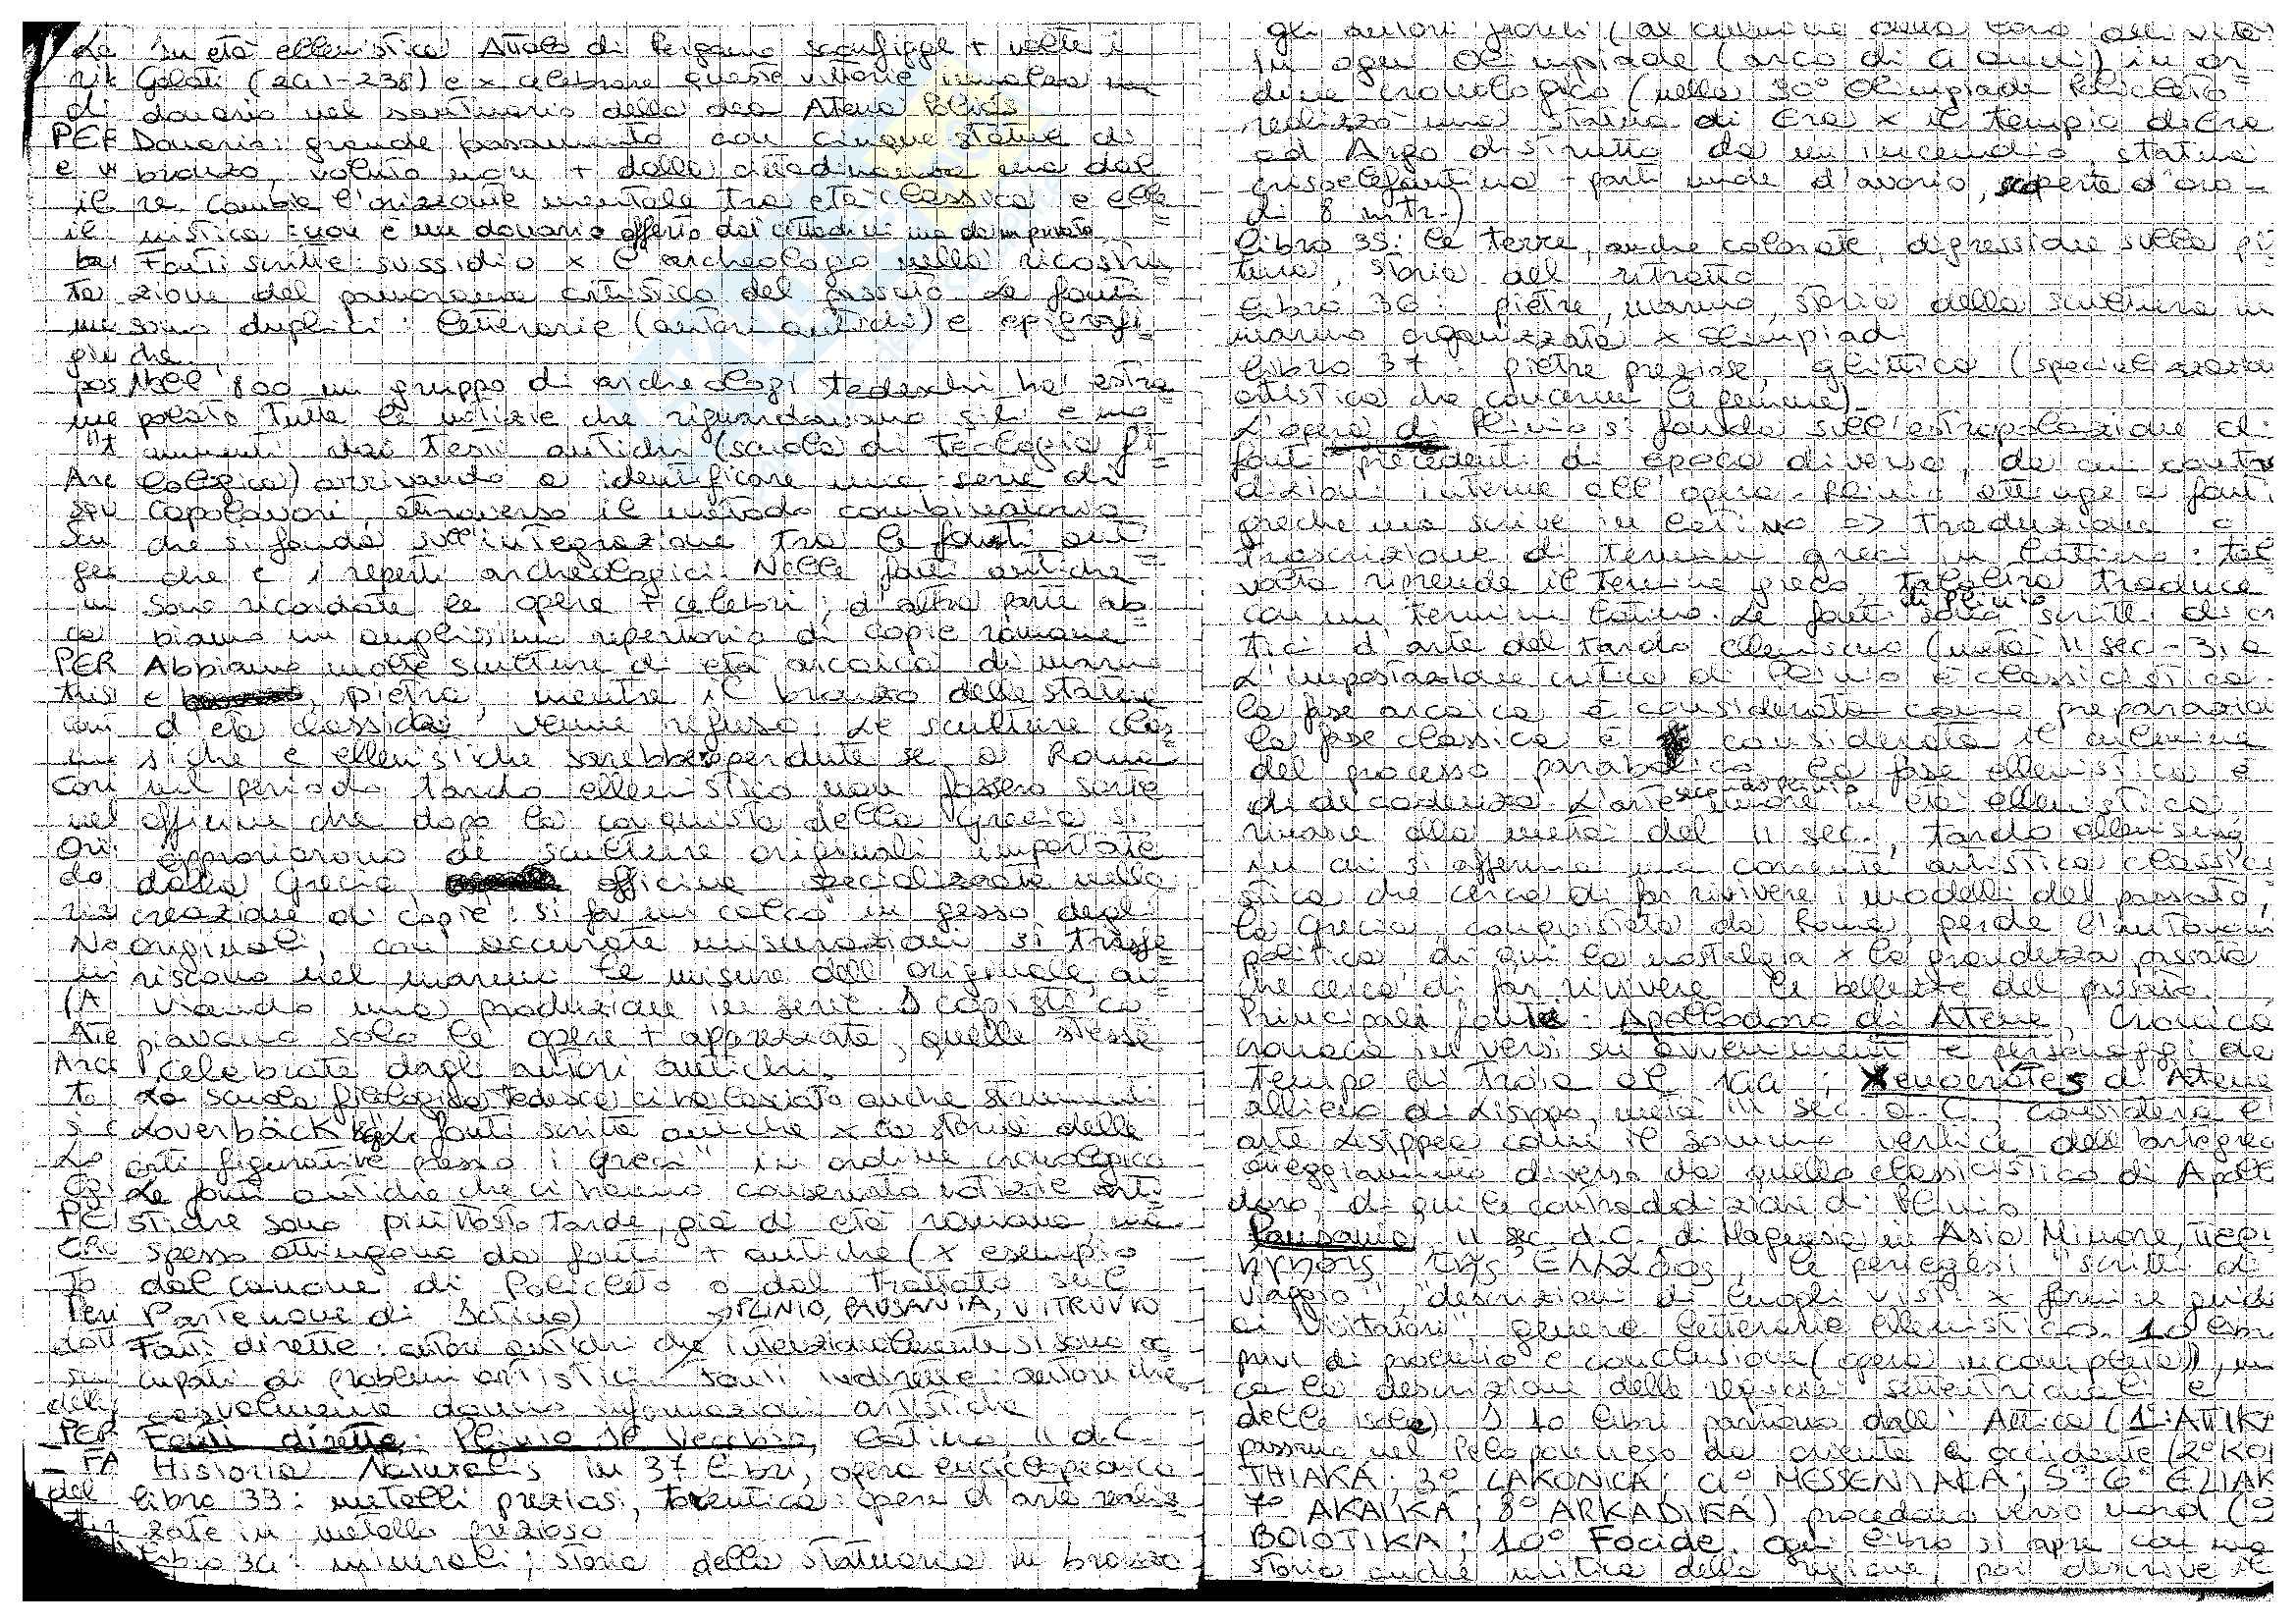 In età ellenistica Attalo di Pergamo sconfigge + volte i
Galati (241-238) e x celebrare queste vittorie innalza un
donario nel santuario della dea Atena Poliàs
Donario: grande basamento con cinque statue di
bronzo, voluto non + dalla cittadinanza ma dal
re. Cambia l'orizzonte mentale tra età classica e elle=
nistica: non è un donario offerto dai cittadini ma da un privato
Fonti scritte: sussidio x l'archeologo nella ricostru
zione del panorama artistico del passato. Le fonti
sono duplici: letterarie (autori antichi) e epigrafi=
che.
Nell'800 un gruppo di archeologi tedeschi ha estra=
polato tutte le notizie che riguardavano siti e mo
numenti dai testi antichi (scuola di teologia fi=
lologica) arrivando a identificare una serie di
capolavori, attraverso il metodo combinatorio
che si fonda sull'integrazione tra le fonti anti=
che e i reperti archeologici. Nelle fonti antiche
sono ricordate le opere + celebri; d'altra parte ab
biamo un amplissimo repertorio di copie romane
Abbiamo molte sculture di età arcaica di marmo
e pietra, mentre il bronzo delle statue
d'età classica venne rifuso. Le sculture clas=
siche e ellenistiche sarebbero perdute se a Roma
nel periodo tardo ellenistico non fossero sorte
officine che dopo la conquista della Grecia si
appropriarono di sculture originali importate
dalla Grecia officine specializzate nella
creazione di copie: si fa un calco in gesso degli
originali, con accurate misurazioni si trasfe=
riscono nel marmo le misure dell'originale, av=
viando una produzione in serie. I copisti co
piavano solo le opere + apprezzate, quelle stesse
celebrate dagli autori antichi.
La scuola filologica tedesca ci ha lasciato anche strumenti
Loverbäck "Le fonti scritte antiche x la storia delle
arti figurative presso i Greci" in ordine cronologico
Le fonti antiche che ci hanno conservato notizie arti=
stiche sono piuttosto tarde, già di età romana ma
spesso attingono da fonti + antiche (x esempio
dal canone di Policleto o dal trattato sul
Partenone di Ictino)
PLINIO, PAUSANIA, VITRUVIO
Fonti dirette: autori antichi che intenzionalmente si sono oc
cupati di problemi artistici - fonti indirette: autori che
casualmente danno informazioni artistiche
Fonti dirette: Plinio il Vecchio, latino, II d.C.
Historia Naturalis in 37 libri, opera enciclopedica
libro 33: metalli preziosi, toreutica: opere d'arte realiz=
zate in metallo prezioso
libro 34: minerali; storia della statuaria in bronzo
gli autori fioriti (al culmine della loro attività)
in ogni Olimpiade (arco di 4 anni) in or=
dine cronologico (nella 90° Olimpiade Policleto
realizzò una statua di Era x il tempio di Era
ad Argo distrutto da un incendio, statua
crisoelefantina - parti nude d'avorio, coperte d'oro -
di 8 mtr.)
libro 35: le terre, anche colorate, digressione sulla pit
tura, storia del ritratto
libro 36: pietre, marmo, storia della scultura in
marmo organizzata x Olimpiadi
libro 37: pietre preziose, glittica (specializzazione
artistica che concerne le gemme)
L'opera di Plinio si fonda sull'estrapolazione di
fonti precedenti di epoca diversa, da cui contrad
dizioni interne all'opera. Plinio attinge a fonti
greche ma scrive in latino => traduzione o
trascrizione di termini greci in latino: tal
volta riprende il termine greco, talaltra traduce
con un termine latino. Le fonti di Plinio sono scritti di cri
tici d'arte del tardo ellenismo (metà II sec - 31 a
L'impostazione critica di Plinio è classicistica:
la fase arcaica è considerata come preparazio
la fase classica è considerata il culmine
del processo parabolico la fase ellenistica è
di decadenza. L'arte secondo Plinio muore in età ellenistica
rinasce alla metà del II sec., tardo ellenismo,
in cui si afferma una corrente artistica classici
stica che cerca di far rivivere i modelli del passato;
la Grecia, conquistata da Roma, perde l'autonomia
politica, di qui la nostalgia x la grandezza passata
che cerca di far rivivere le bellezze del passato.
Principali fonti: Apollodoro di Atene, Cronica
cronaca in versi su avvenimenti e personaggi da
tempo di Troia al 144; Xenocrates di Atene
allievo di Lisippo, metà III sec. a.C., considera l'
arte Lisippea come il sommo vertice dell'arte greca
atteggiamento diverso da quello classicistico di Apollo
doro, di qui le contraddizioni di Plinio
Pausania, II sec d.C. di Magnesia in Asia Minore, περι
ηγησις της Ελλάδος, le periegesi "scritti di
viaggio", "descrizioni di luoghi visti x fornire guide
ai visitatori", genere letterario ellenistico. 10 libri
privi di proemio e conclusione (opera incompleta), man
ca la descrizione delle regioni settentrionali e
delle isole) I 10 libri partono dall'Attica (1°: ATTIKA
passano nel Peloponneso da oriente a occidente (2° KOI
THIAKA; 3° LAKONICA; 4° MESSENIACA; 5°-6° ELIAK
7° AKAIKA; 8° ARKADIKA) procedono verso nord (9
BOIOTIKA; 10° Focide. Ogni libro si apre con una
storia anche mitica della regione, poi descrive il